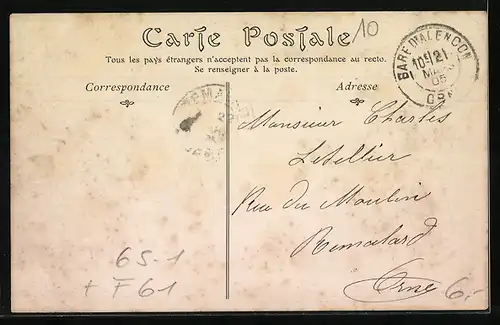 Carte Postale
10
Tous les pays étrangers n'acceptent pas la correspondance au recto.
Se renseigner à la poste.
Correspondance
Adresse
GARE D'ALENCON
21
05
Monsieur Charles
Letellier
Rue du Moulin
Remalard
Orne
6S-1
+ F61
6.-